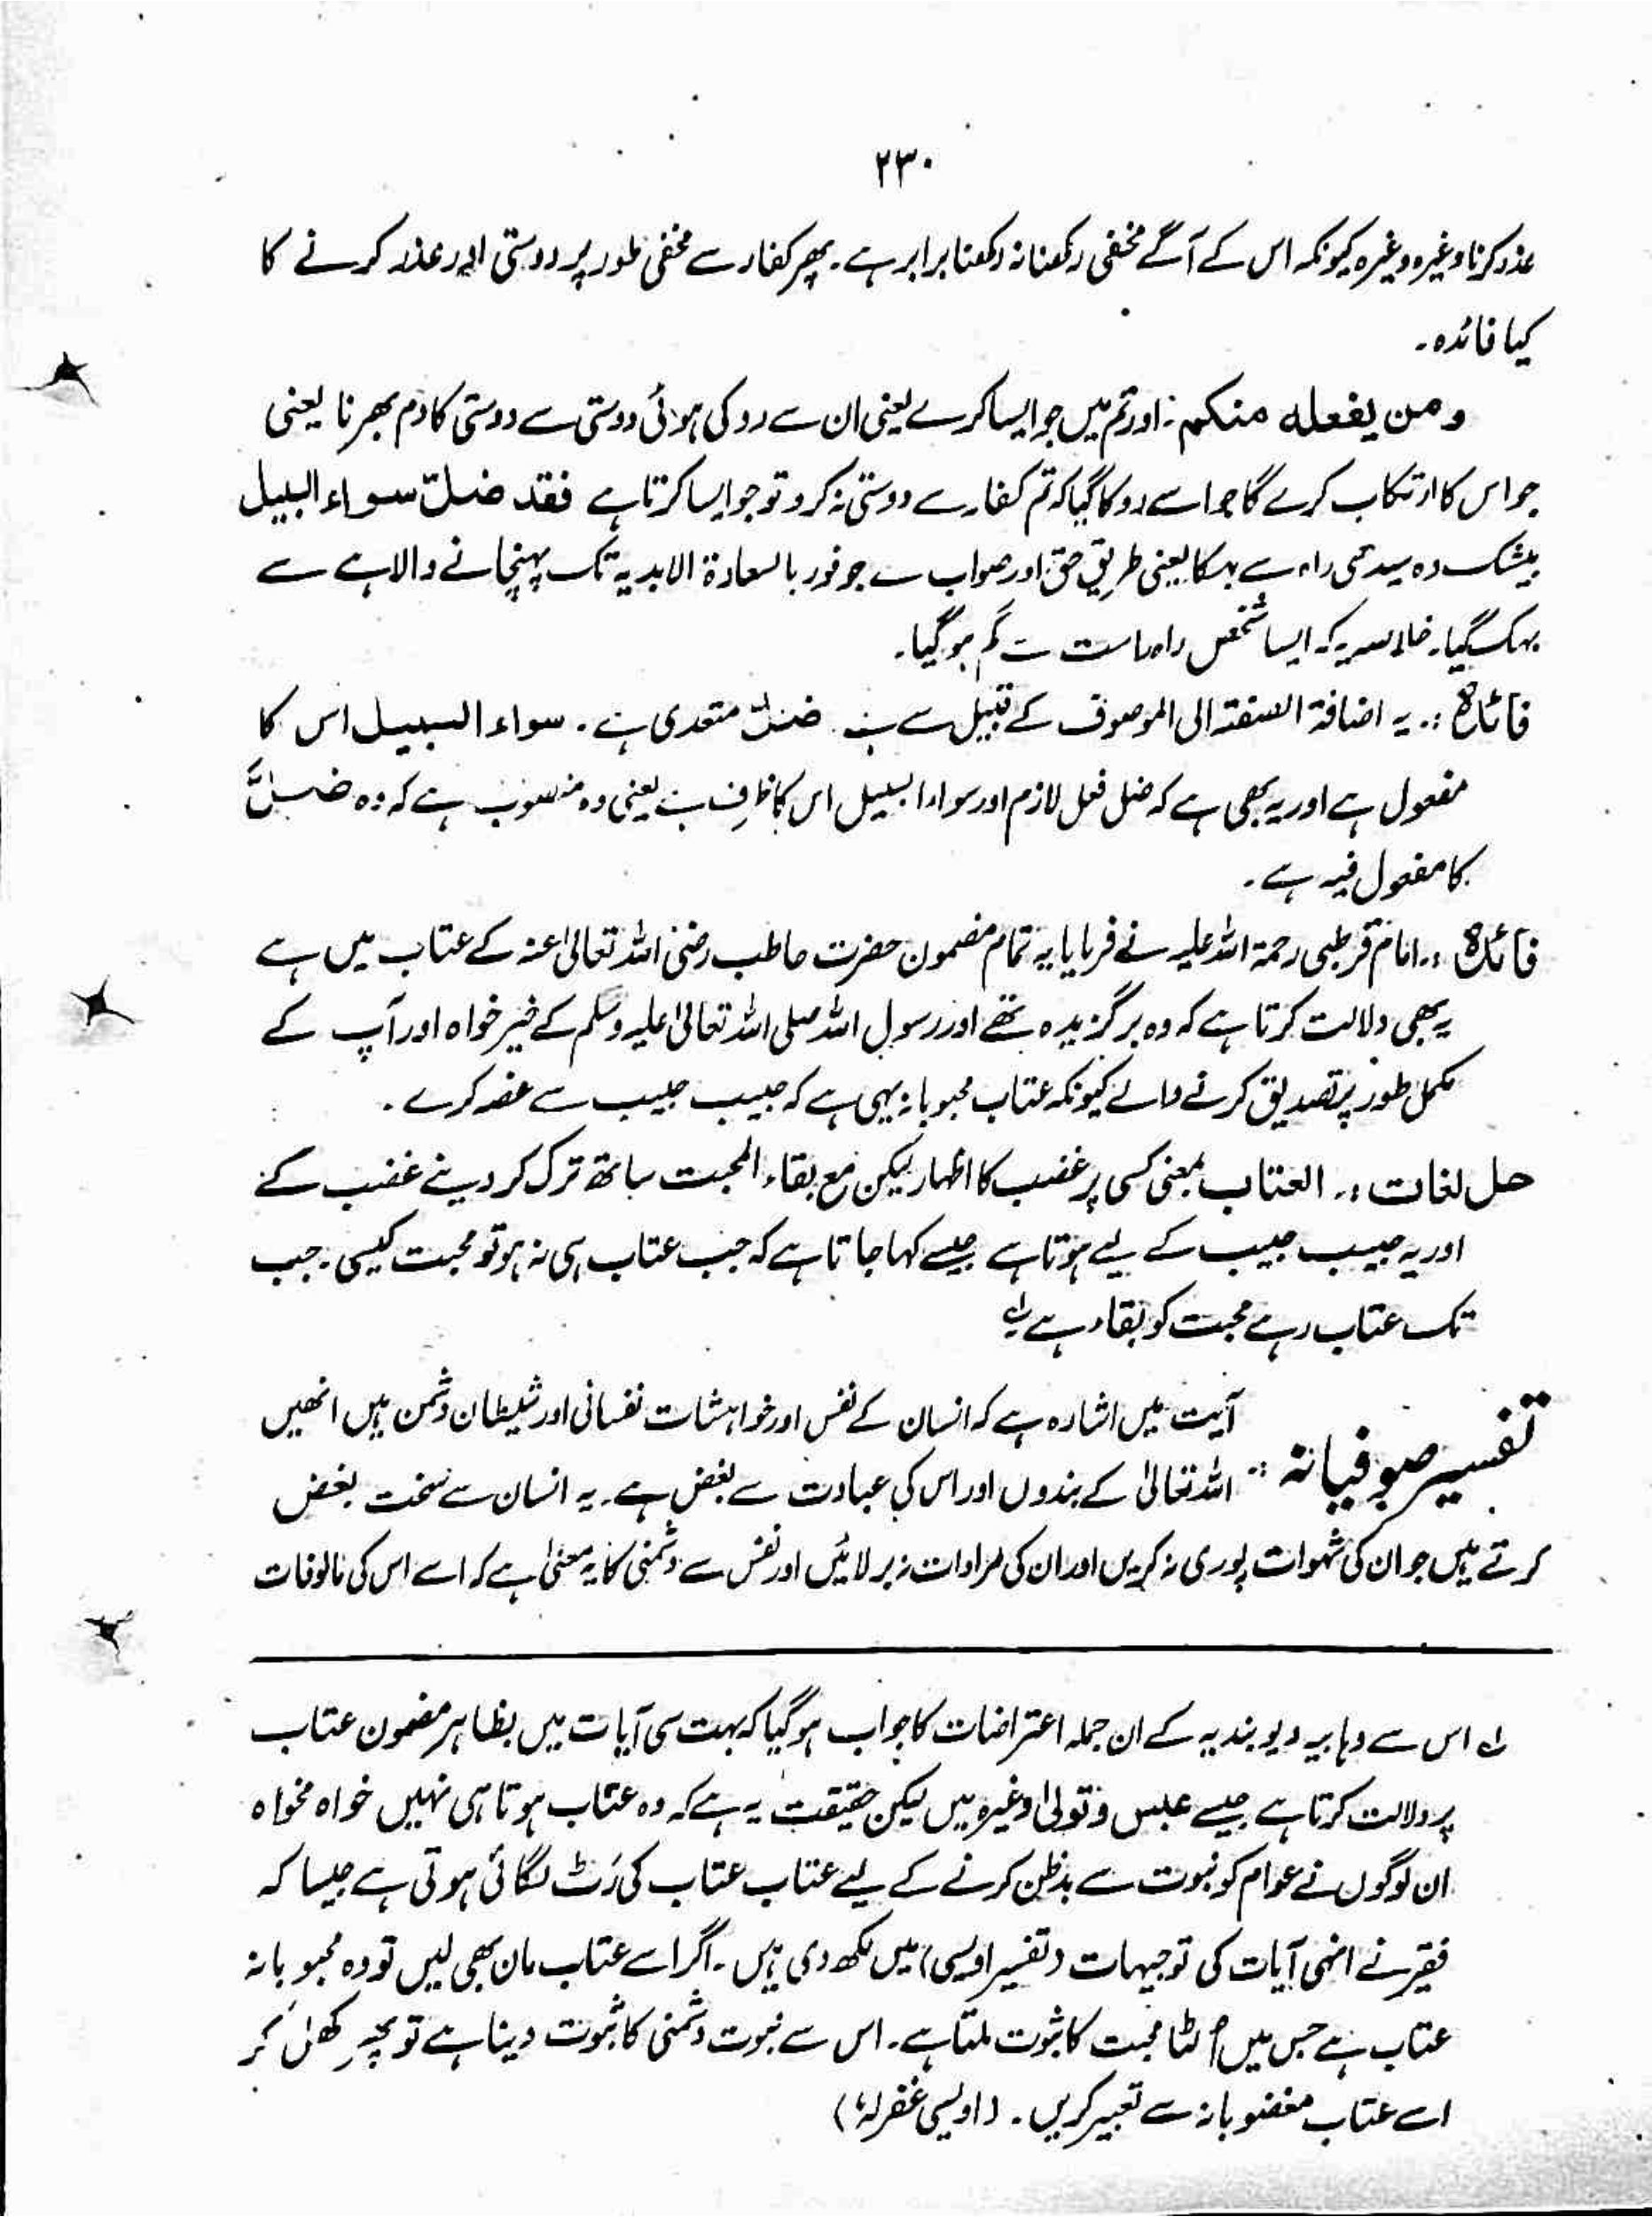 ۲۳۰
عذر کرنا وغیرہ وغیرہ کیونکہ اس کے آگے مخفی رکھنا نہ رکھنا برابر ہے۔ پھر کفار سے مخفی طور پر دوستی اور عذر کرنے کا
کیا فائدہ۔
ومن یفعلہ منکم: اور تم میں جو ایسا کرے یعنی ان سے روکی ہوئی دوستی سے دوستی کا دم بھرنا یعنی
جو اس کا ارتکاب کرے گا جو اسے روکا گیا کہ تم کفار سے دوستی نہ کرو تو جو ایسا کرتا ہے فقد ضلّ سواء السبیل
بیشک وہ سیدھی راہ سے بہکا یعنی طریقِ حق اور صواب سے جو فوز بالسعادۃ الابدیہ تک پہنچانے والا ہے سے
بہک گیا۔ خلاصہ یہ کہ ایسا شخص راہ راست سے گم ہو گیا۔
فائدہ :. یہ اضافۃ الصفتہ الی الموصوف کے قبیل سے ہے۔ ضلّ متعدی ہے۔ سواء السبیل اس کا
مفعول ہے اور یہ بھی ہے کہ ضل فعل لازم اور سواء السبیل اس کا ظرف ہے یعنی وہ منصوب ہے کہ وہ ضلَّ
کا مفعول فیہ ہے۔
فائدہ :. امام قرطبی رحمۃ اللہ علیہ نے فرمایا یہ تمام مضمون حضرت حاطب رضی اللہ تعالیٰ عنہ کے عتاب میں ہے
یہ بھی دلالت کرتا ہے کہ وہ برگزیدہ تھے اور رسول اللہ صلی اللہ تعالیٰ علیہ وسلم کے خیر خواہ اور آپ کے
مکمل طور پر تصدیق کرنے والے کیونکہ عتاب محبوبانہ یہی ہے کہ حبیب حبیب سے غصہ کرے۔
حل لغات :. العتاب بمعنی کسی پر غضب کا اظہار لیکن مع بقاء المحبت ساتھ ترک کر دینے غضب کے
اور یہ حبیب حبیب کے لیے ہوتا ہے جیسے کہا جاتا ہے کہ جب عتاب ہی نہ ہو تو محبت کیسی۔ جب
تک عتاب رہے محبت کو بقاء ہے لے
تفسیر صوفیانہ :: آیت میں اشارہ ہے کہ انسان کے نفس اور خواہشات نفسانی اور شیطان دشمن ہیں انھیں
اللہ تعالیٰ کے بندوں اور اس کی عبادت سے بغض ہے۔ یہ انسان سے سخت بغض
کرتے ہیں جو ان کی شہوات پوری نہ کریں اور ان کی مرادات نہ بر لائیں اور نفس سے دشمنی کا یہ معنیٰ ہے کہ اسے اس کی مالوفات
لے اس سے وہابیہ دیوبندیہ کے ان جملہ اعتراضات کا جواب ہو گیا کہ بہت سی آیات میں بظاہر مضمون عتاب
پر دلالت کرتا ہے جیسے عبس و تولیٰ وغیرہ میں لیکن حقیقت یہ ہے کہ وہ عتاب ہوتا ہی نہیں خواہ مخواہ
ان لوگوں نے عوام کو نبوت سے بدظن کرنے کے لیے عتاب عتاب کی رَٹ لگائی ہوتی ہے جیسا کہ
فقیر نے انہی آیات کی توجیہات (تفسیر اویسی) میں لکھ دی ہیں۔ اگر اسے عتاب مان بھی لیں تو وہ محبوبانہ
عتاب ہے جس میں اُلٹا محبت کا ثبوت ملتا ہے۔ اس سے نبوت دشمنی کا ثبوت دینا ہے تو پھر کھل کر
اسے عتاب مغضوبانہ سے تعبیر کریں۔ (اویسی غفرلہٗ)